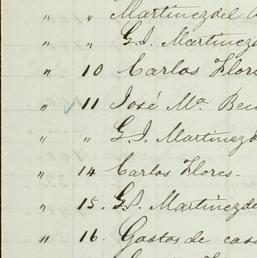 " " Martinez del
" G.J. Martinez
" 10 Carlos Flores
" 11 José Mª
" " G.J. Martinez
" 14 Carlos Flores.
" 15. G.J. Martinez de
" 16. Gastos de casa